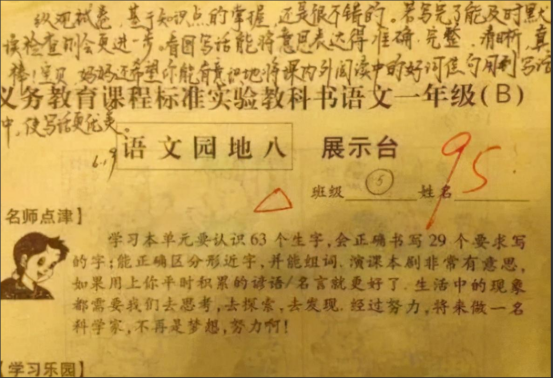 纵观试卷，基于知识点的掌握，还是很不错的。若写完了能及时默
读检查则会更进一步。看图写话能将意思表达得准确、完整、清晰，真
棒！宝贝，妈妈还希望你能有意识地将课内外阅读中的好词佳句用到写话
义务教育课程标准实验教科书语文一年级(B)
中，使写话更优美。
6.19
语文园地八 展示台
95
班级 ⑤ 姓名
名师点津】
学习本单元要认识63个生字,会正确书写29个要求写
的字;能正确区分形近字,并能组词.演课本剧非常有意思,
如果用上你平时积累的谚语/名言就更好了.生活中的现象
都需要我们去思考,去探索,去发现.经过努力,将来做一名
科学家,不再是梦想,努力啊!
【学习乐园】